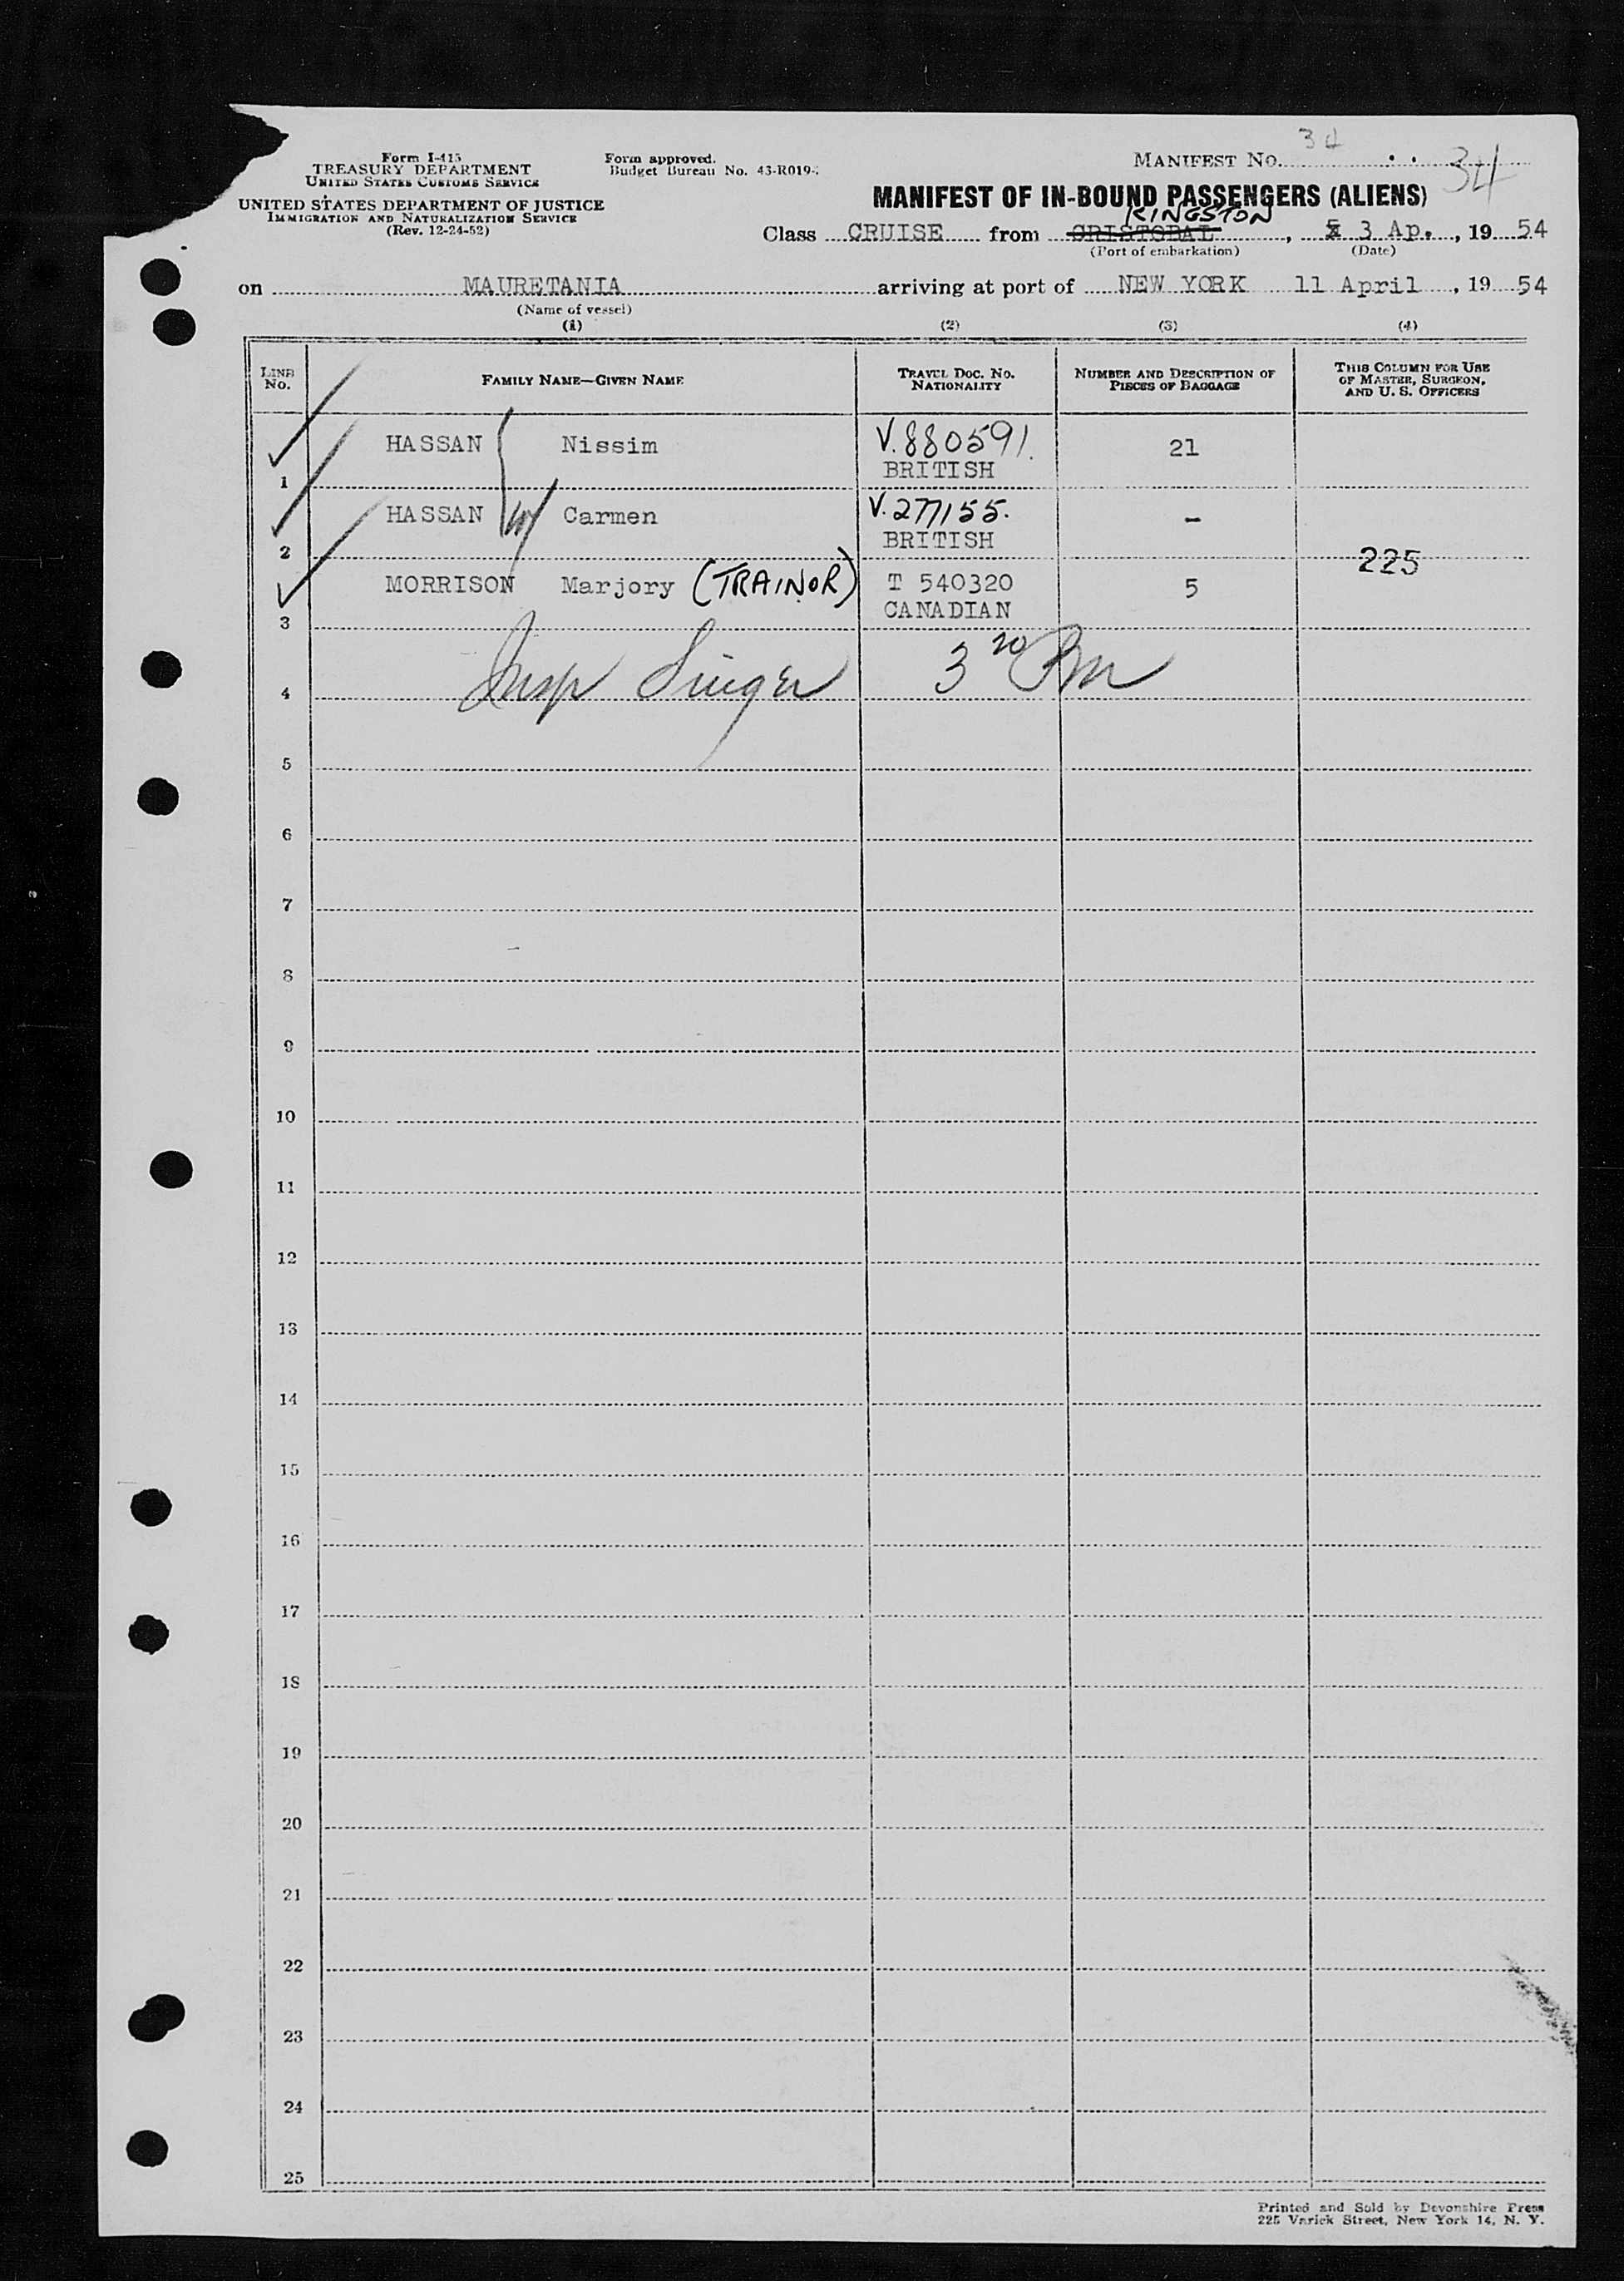 34
Form I-415
TREASURY DEPARTMENT
UNITED STATES CUSTOMS SERVICE
UNITED STATES DEPARTMENT OF JUSTICE
IMMIGRATION AND NATURALIZATION SERVICE
(Rev. 12-24-52)
Form approved.
Budget Bureau No. 43-R019-
MANIFEST No.
34
MANIFEST OF IN-BOUND PASSENGERS (ALIENS)
KINGSTON
Class CRUISE from CRISTOBAL, 3 Ap., 1954
(Port of embarkation) (Date)
on MAURETANIA arriving at port of NEW YORK 11 April, 1954
(Name of vessel)
(1) (2) (3) (4)
LINE No. FAMILY NAME—GIVEN NAME TRAVEL DOC. No. NATIONALITY NUMBER AND DESCRIPTION OF PIECES OF BAGGAGE THIS COLUMN FOR USE OF MASTER, SURGEON, AND U. S. OFFICERS
1 HASSAN Nissim V.880591. BRITISH 21
2 HASSAN W Carmen V.277155. BRITISH -
225
3 MORRISON Marjory (TRAINOR) T 540320 CANADIAN 5
4 Insp Singer 3 20 Pm
5
6
7
8
9
10
11
12
13
14
15
16
17
18
19
20
21
22
23
24
25
Printed and Sold by Devonshire Press
225 Varick Street, New York 14, N. Y.